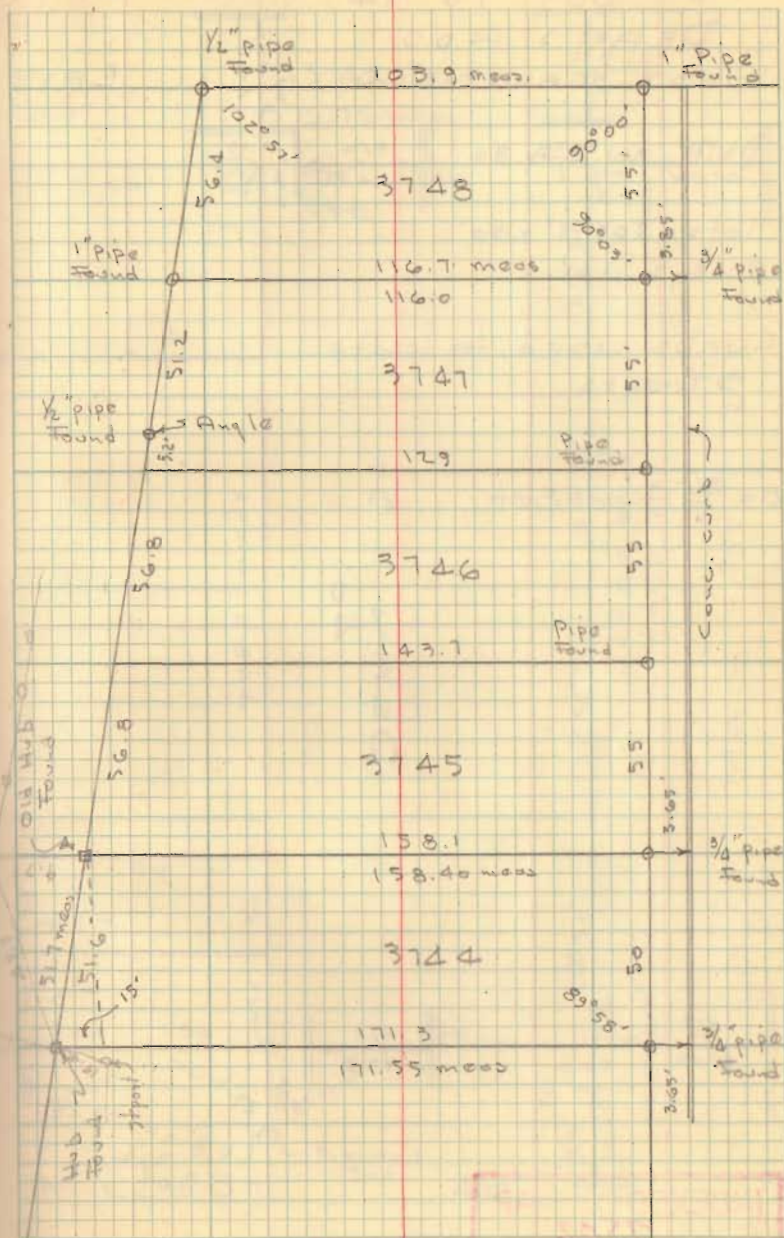 1/2" pipe
Found
103.9 meas.
1" Pipe
Found
102° 57'
90° 00'
56.4
3748
55'
3.85'
1" pipe
Found
116.7 meas
116.0
3/4" pipe
Found
51.2
3747
55'
1/2" pipe
Found
Angle
5.2'
Pipe
Found
129
Conc. curb
56.8
3746
55
Pipe
Found
143.7
Old Hub
Found
56.8
3745
55
3.65'
A
158.1
158.40 meas
3/4" pipe
Found
51.7 meas
51.6
3744
50
15'
89° 58'
171.3
171.55 meas
3/4" pipe
Found
3.65'
Hub
Found